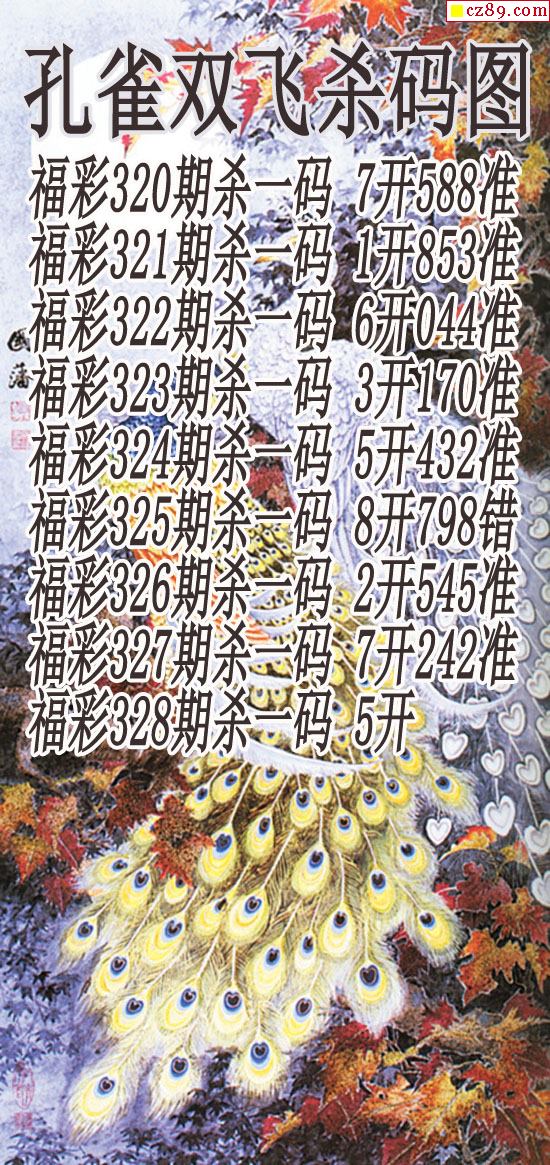 cz89.com
孔雀双飞杀码图
福彩320期杀一码 7开588准
福彩321期杀一码 1开853准
福彩322期杀一码 6开044准
福彩323期杀一码 3开170准
福彩324期杀一码 5开432准
福彩325期杀一码 8开798错
福彩326期杀一码 2开545准
福彩327期杀一码 7开242准
福彩328期杀一码 5开